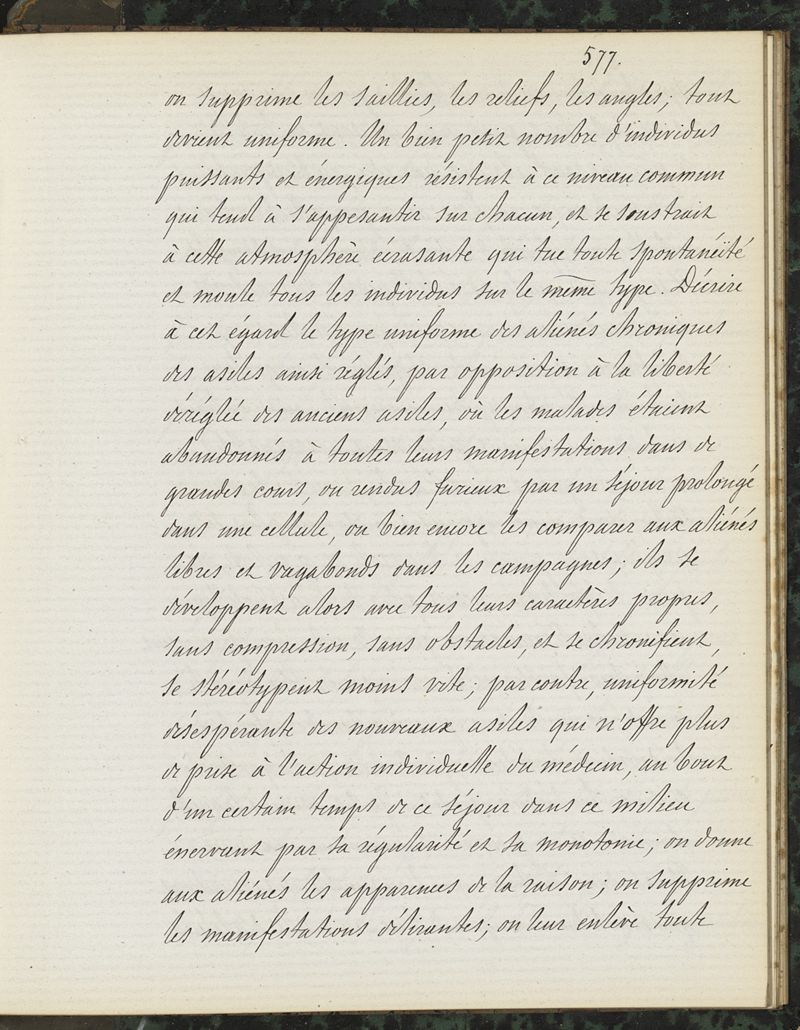 577.
on supprime les saillies, les reliefs, les angles; tout
devient uniforme. Un bien petit nombre d'individus
puissants et énergiques résistent à ce niveau commun
qui tend à s'appesantir sur chacun, et se soustrait
à cette atmosphère écrasante qui tue toute spontanéité
et moule tous les individus sur le même type. Décrire
à cet égard le type uniforme des aliénés chroniques
des asiles ainsi réglés, par opposition à la liberté
déréglée des anciens asiles, où les malades étaient
abandonnés à toutes leurs manifestations dans de
grandes cours, ou rendus furieux par un séjour prolongé
dans une cellule, ou bien encore les comparer aux aliénés
libres et vagabonds dans les campagnes; ils se
développent alors avec tous leurs caractères propres,
sans compression, sans obstacles, et se chronifient,
se stéréotypent moins vite; par contre, uniformité
désespérante des nouveaux asiles qui n'offre plus
de prise à l'action individuelle du médecin, au bout
d'un certain temps de ce séjour dans ce milieu
énervant par sa régularité et sa monotonie; on donne
aux aliénés les apparences de la raison; on supprime
les manifestations délirantes; on leur enlève toute